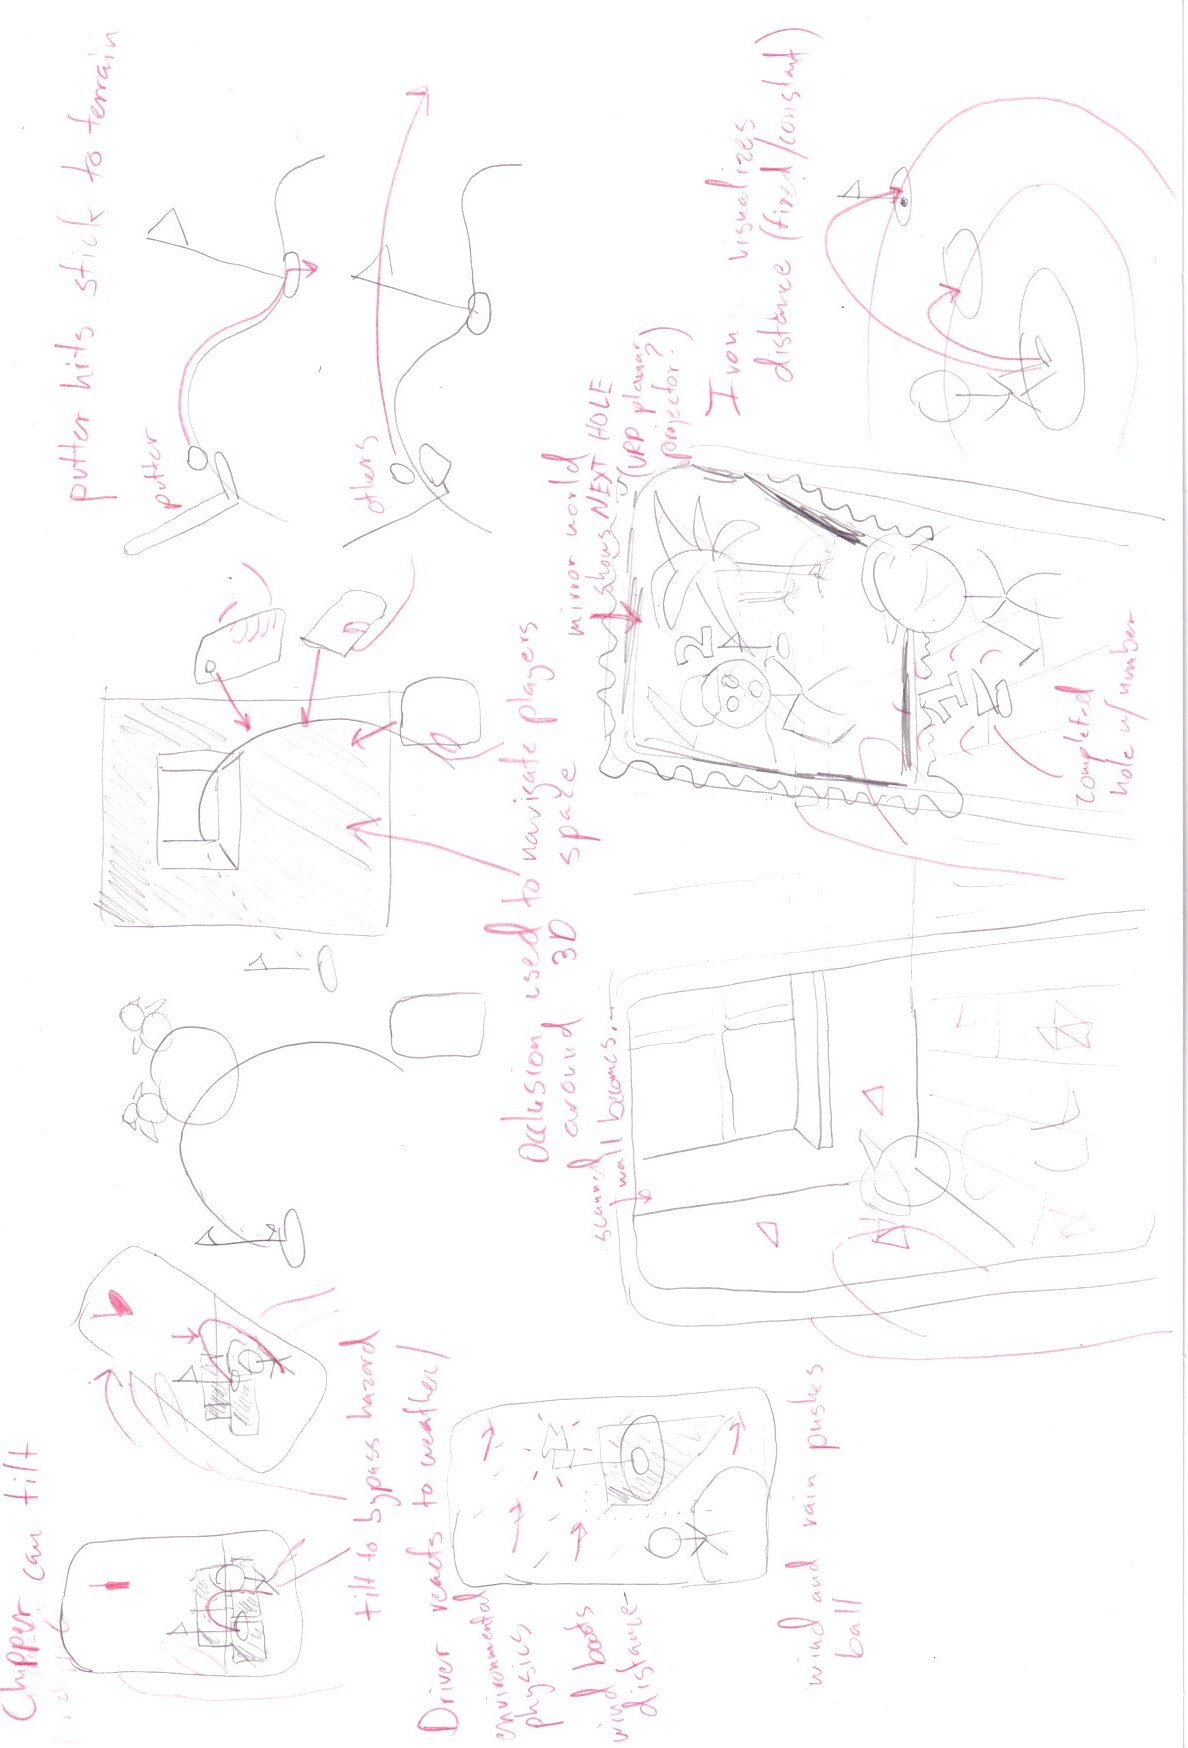 Chipper can tilt
tilt to bypass hazard
putter hits stick to terrain
putter
others
Driver reacts to weather/
environmental
physics
wind boosts
distance
wind and rain pushes
ball
Occlusion used to navigate players
around 3D space
scanned
wall becomes...
mirror world
shows NEXT HOLE
(URP planar
projector?)
2
1
completed
hole w/ number
Iron visualizes
distance (fixed/constant)